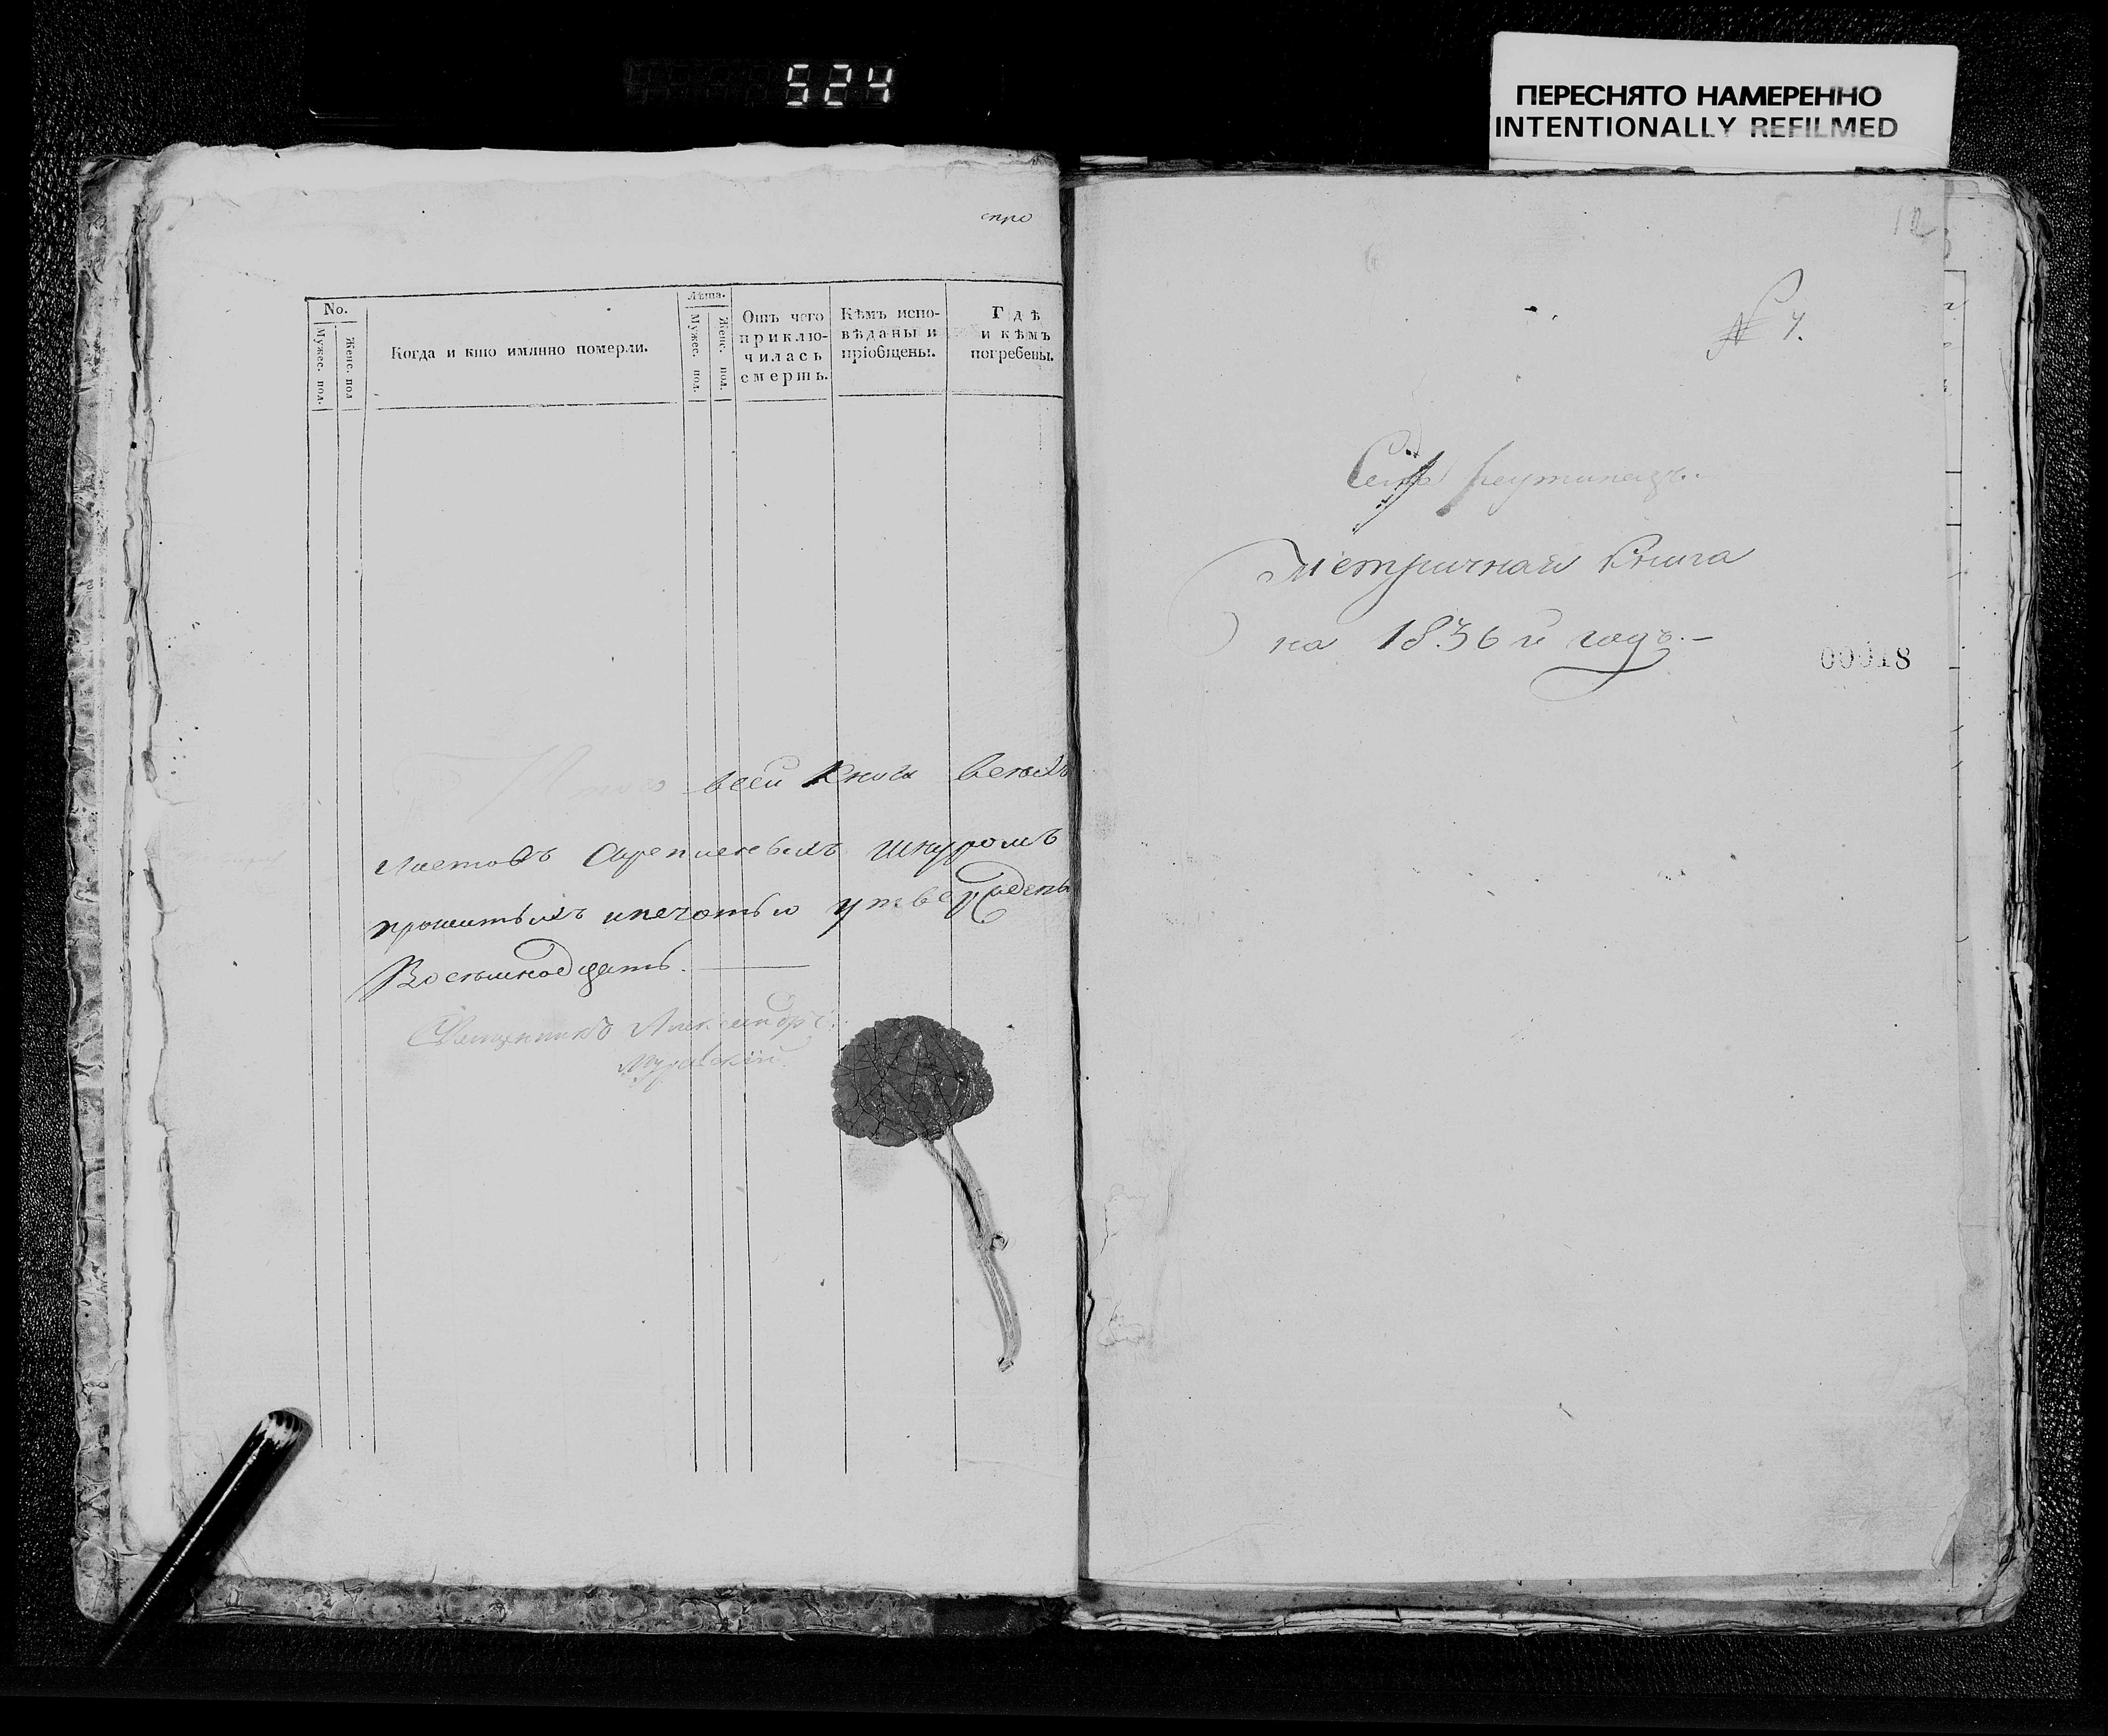 524
ПЕРЕСНЯТО НАМЕРЕННО
INTENTIONALLY REFILMED
No.
Мужес. пол.
Женс. пол
Когда и кто имянно померли.
Лѣта.
Мужес. пол.
Женс. пол.
Отъ чего
приклю-
чилась
смерть.
Кѣмъ испо-
вѣданы и
пріобщены.
Гдѣ
и кѣмъ
погребены.
Итого всей Книги
листовъ скрепленыхъ шнуромъ
прошитыхъ ипечатью утвержденыхъ
Восемнадцать.
Священникъ Александръ
12
№ 7.
Село
Метричная Книга
на 1836й годъ.
00018